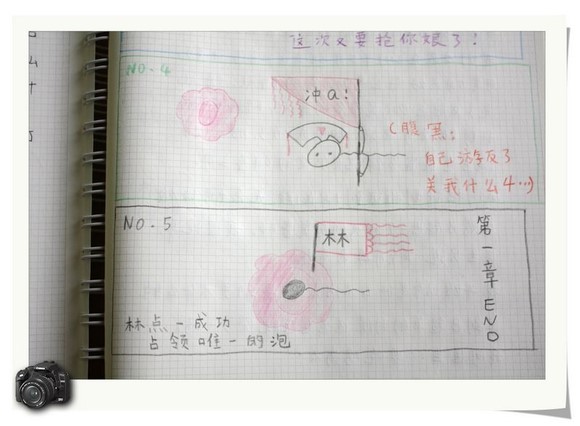 这次又要抢你娘了!
NO.4
冲a!
(腹黑:
自己游反了
关我什么4…)
NO.5
林
第一章END
林点一成功
占领唯一的泡